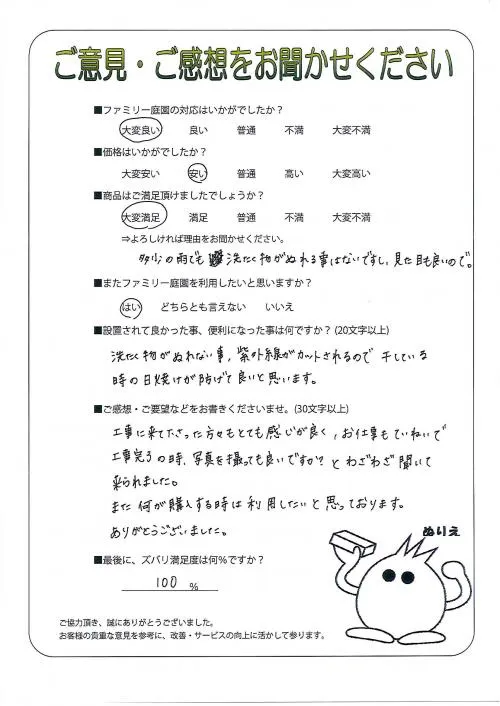 ご意見・ご感想をお聞かせください
■ファミリー庭園の対応はいかがでしたか？
大変良い 良い 普通 不満 大変不満
■価格はいかがでしたか？
大変安い 安い 普通 高い 大変高い
■商品はご満足頂けましたでしょうか？
大変満足 満足 普通 不満 大変不満
⇒よろしければ理由をお聞かせください。
多少の雨でも洗たく物がぬれる事はないですし、見た目も良いので。
■またファミリー庭園を利用したいと思いますか？
はい どちらとも言えない いいえ
■設置されて良かった事、便利になった事は何ですか？(20文字以上)
洗たく物がぬれない事、紫外線がカットされるので干している
時の日焼けが防げて良いと思います。
■ご感想・ご要望などをお書きくださいませ。(30文字以上)
工事に来て下さった方々もとても感じが良く、お仕事もていねいで
工事完了の時、写真を撮っても良いですか？とわざわざ聞いて
来られました。
また何が購入する時は利用したいと思っております。
ありがとうございました。
ぬりえ
■最後に、ズバリ満足度は何％ですか？
100 %
ご協力頂き、誠にありがとうございました。
お客様の貴重な意見を参考に、改善・サービスの向上に活かして参ります。